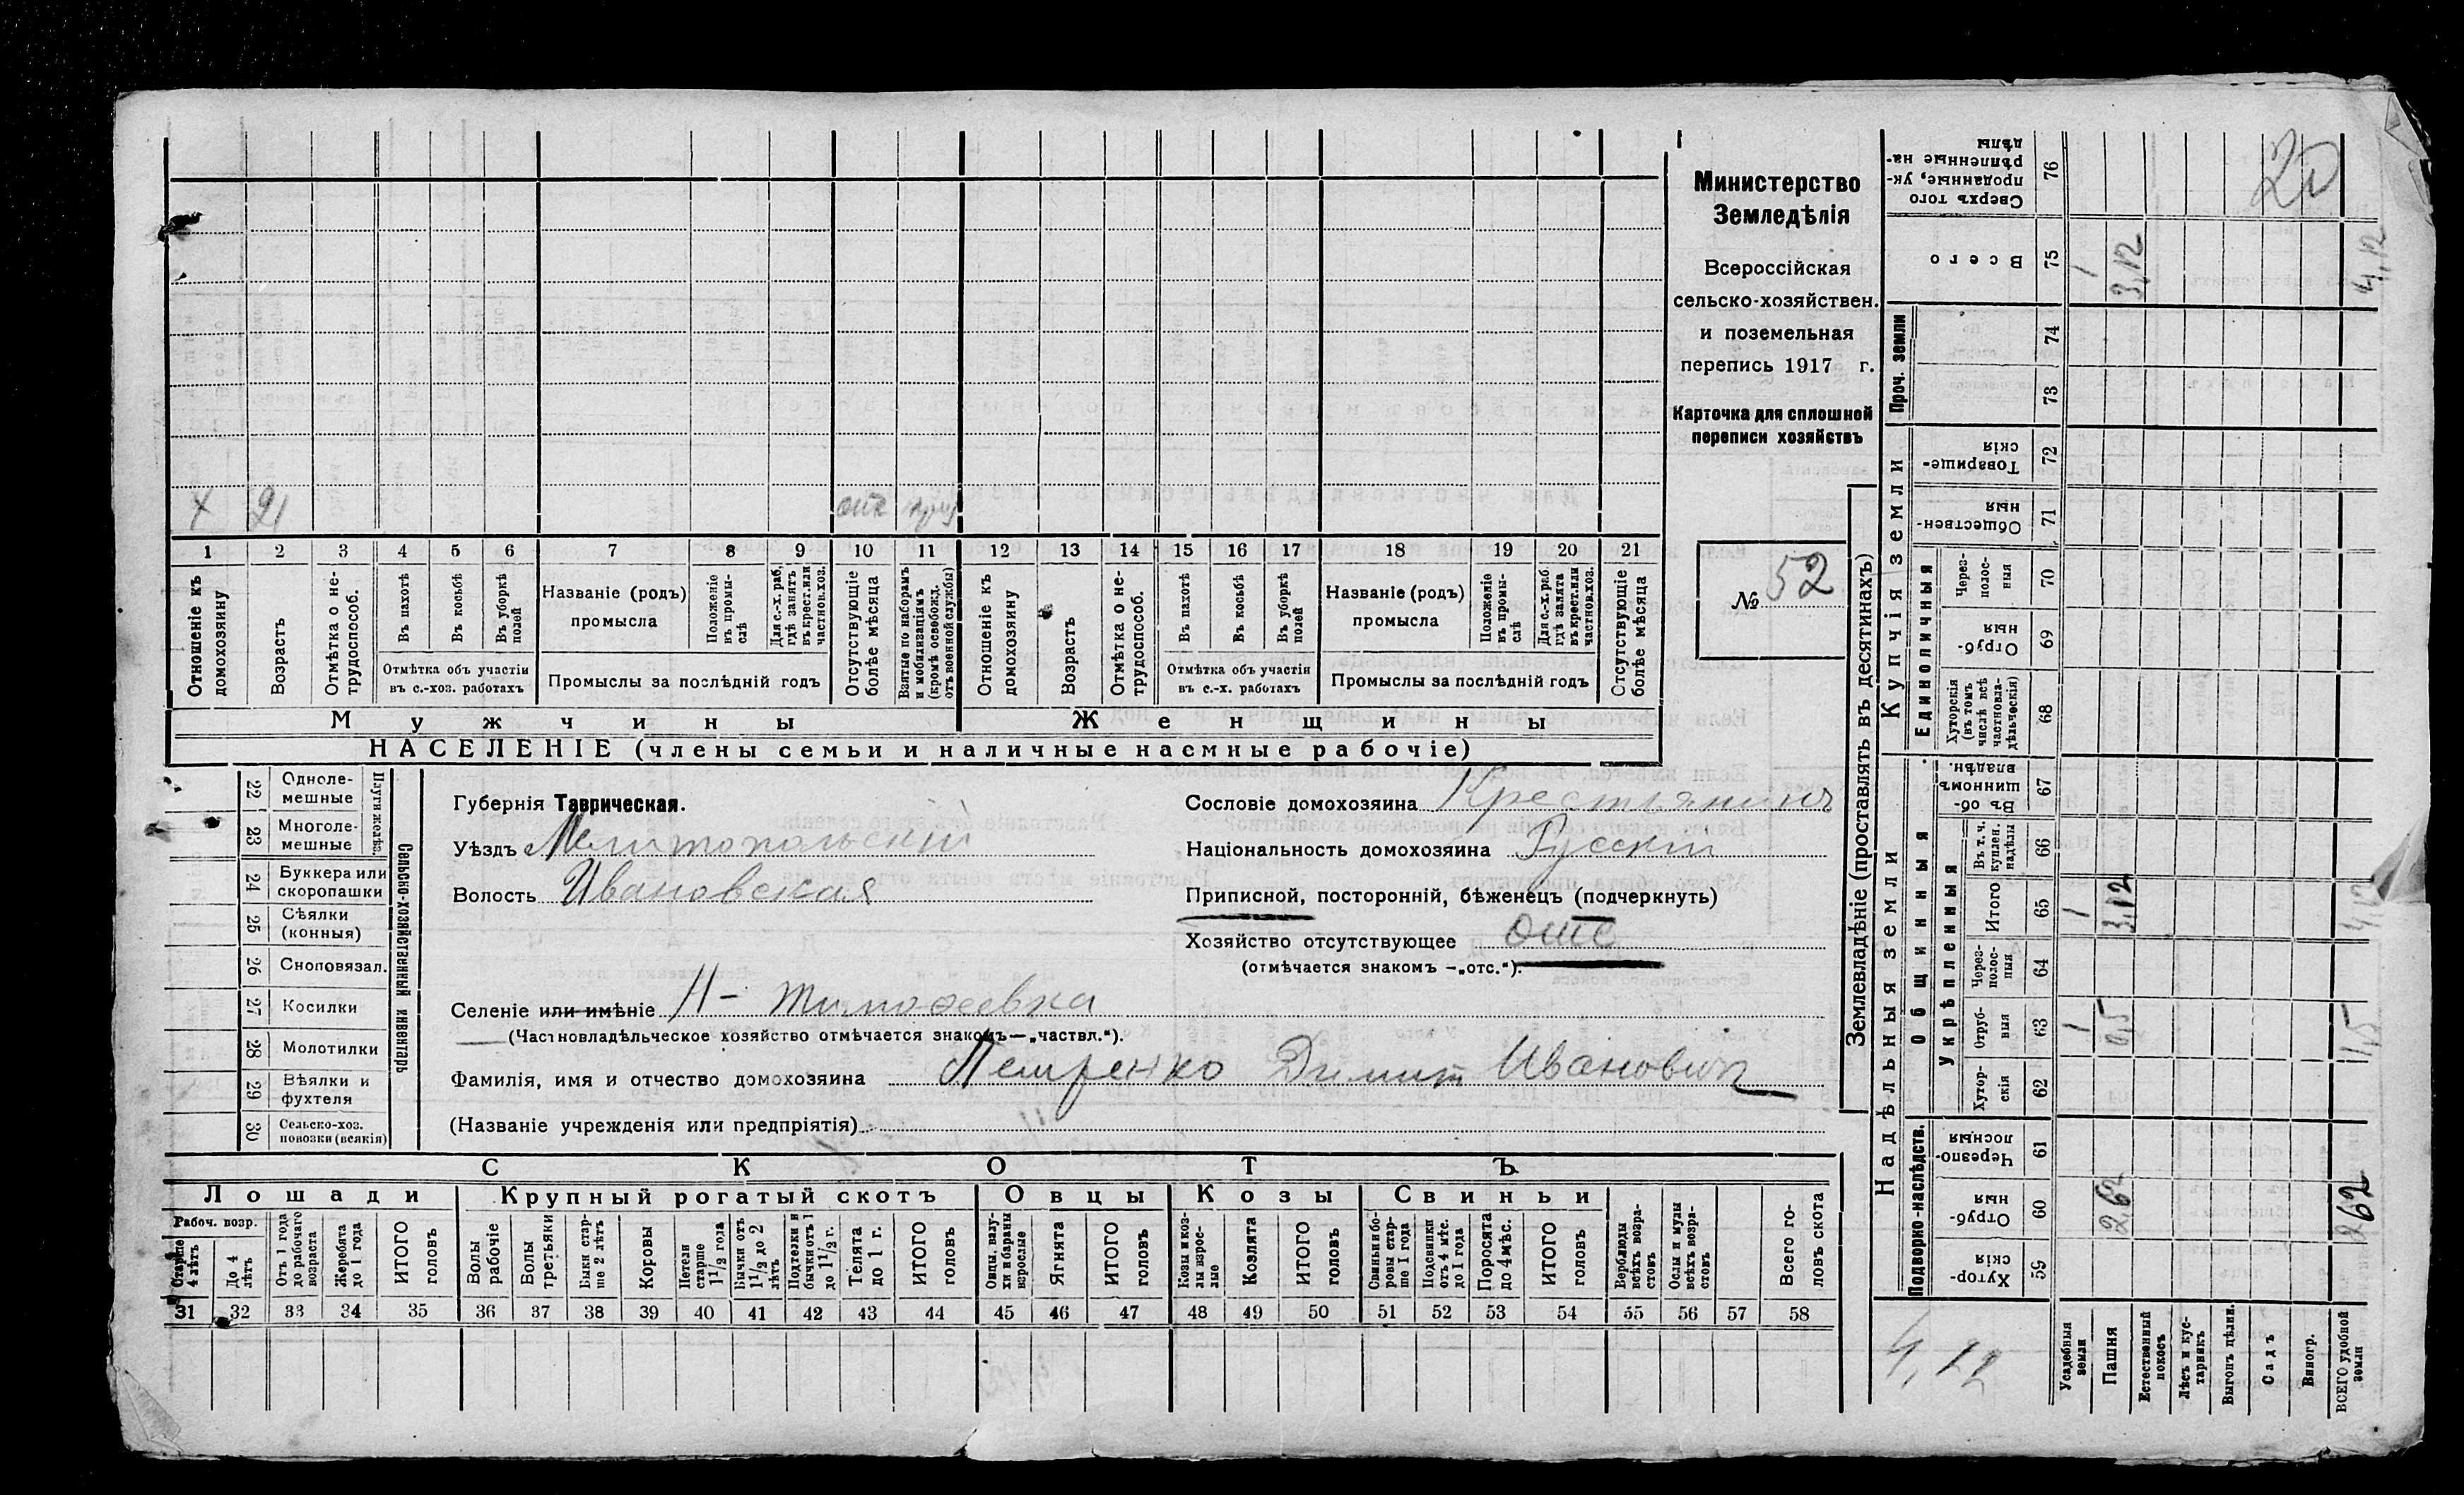 Министерство
Земледѣлія
Всероссійская
сельско-хозяйствен.
и поземельная
перепись 1917 г.
Карточка для сплошной
переписи хозяйствъ
№ 52
х 21 отс
1 2 3 4 5 6 7 8 9 10 11 12 13 14 15 16 17 18 19 20 21
Отношеніе къ домохозяину
Возрастъ
Отмѣтка о не-трудоспособ.
Въ пахотѣ
Въ косьбѣ
Въ уборкѣ полей
Отмѣтка объ участіи
въ с.-хоз. работахъ
Названіе (родъ)
промысла
Положеніе въ промы-слѣ
Для с.-х. раб. гдѣ занятъ въ крест. или частнов. хоз.
Промыслы за послѣдній годъ
Отсутствующіе болѣе мѣсяца
Взятые по наборамъ и мобилизаціямъ (кромѣ освобожд. отъ военной службы)
Отношеніе къ домохозяину
Возрастъ
Отмѣтка о не-трудоспособ.
Въ пахотѣ
Въ косьбѣ
Въ уборкѣ полей
Отмѣтка объ участіи
въ с.-х. работахъ
Названіе (родъ)
промысла
Положеніе въ промы-слѣ
Для с.-х. раб. гдѣ занята въ крест. или частнов. хоз.
Промыслы за послѣдній годъ
Отсутствующіе болѣе мѣсяца
Мужчины Женщины
НАСЕЛЕНІЕ (члены семьи и наличные наемные рабочіе)
22 Одноле-мешные
23 Многоле-мешные
Плуги желѣз.
24 Буккера или скоропашки
25 Сѣялки (конныя)
26 Сноповязал.
27 Косилки
28 Молотилки
29 Вѣялки и фухтеля
30 Сельско-хоз. повозки (всякія)
Сельско-хозяйственный инвентарь
Губернія Таврическая.
Уѣздъ Мелитопольскій
Волость Ивановская
Сословіе домохозяина Крестьянинъ
Національность домохозяина Русскій
Приписной, посторонній, бѣженецъ (подчеркнуть)
Хозяйство отсутствующее отс
(отмѣчается знакомъ —„отс.“).
Селеніе или имѣніе Н - Тимофеевка
(Частновладѣльческое хозяйство отмѣчается знакомъ—„частвл.“).
Фамилія, имя и отчество домохозяина Петренко Димит Иванович
(Названіе учрежденія или предпріятія)
СКОТЪ
Лошади Крупный рогатый скотъ Овцы Козы Свиньи
Рабоч. возр.
Старше 4 лѣтъ
До 4 лѣтъ
Отъ 1 года до рабочаго возраста
Жеребята до 1 года
ИТОГО головъ
Волы рабочіе
Волы третьяки
Быки стар-ше 2 лѣтъ
Коровы
Нетели старше 1 1/2 года
Бычки отъ 1 1/2 до 2 лѣтъ
Подтелки и бычки отъ 1 до 1 1/2 г.
Телята до 1 г.
ИТОГО головъ
Овцы, валу-хи и бараны взрослые
Ягнята
ИТОГО головъ
Козы и коз-лы взрос-лые
Козлята
ИТОГО головъ
Свиньи и бо-ровы стар-ше 1 года
Подсвинки отъ 4 мѣс. до 1 года
Поросята до 4 мѣс.
ИТОГО головъ
Верблюды всѣхъ возра-стовъ
Ослы и мулы всѣхъ возра-стовъ
Всего го-ловъ скота
31 32 33 34 35 36 37 38 39 40 41 42 43 44 45 46 47 48 49 50 51 52 53 54 55 56 57 58
Землевладѣніе (проставлять въ десятинахъ)
Надѣльныя земли
Купчія земли
Проч. земли
Подворно-наслѣдств.
Общинныя
Укрѣпленныя
Единоличныя
76 Сверхъ того проданные, ук-рѣпленные на-дѣлы 20
75 Всего 1 3,12 4,12
74
73
72 Товарище-скія
71 Обществен-ныя
70 Через-полос-ныя
69 Отруб-ныя
68 Хуторскія (въ томъ числѣ всѣ частновла-дѣльческія)
67 Въ об-щинномъ владѣн.
66 Въ т. ч. куплен. надѣлы
65 Итого 1 3,12 4,12
64 Через-полос-ныя
63 Отруб-ныя 1 0,5 1,5
62 Хутор-скія
61 Черезпо-лосныя
60 Отруб-ныя 2,62 2,62
59 Хутор-скія
4,12
Усадебныя земли
Пашня
Естественный покосъ
Лѣсъ и кус-тарникъ
Выгонъ цѣлин.
Садъ
Виногр.
ВСЕГО удобной земли